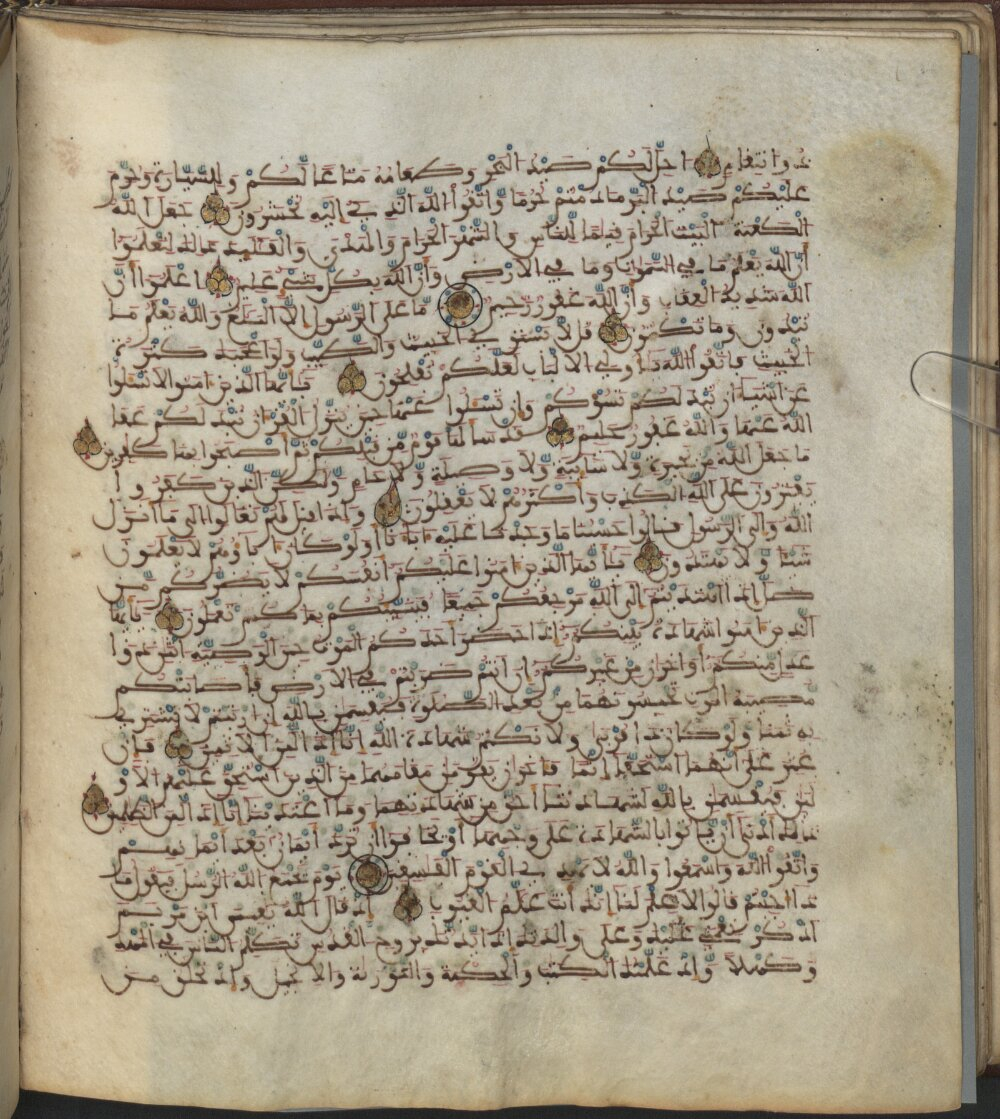 ذو انتقام احل لكم صيد البحر وطعامه متاعا لكم وللسيارة وحرم
عليكم صيد البر ما دمتم حرما واتقوا الله الذي إليه تحشرون جعل الله
الكعبة البيت الحرام قيما للناس والشهر الحرام والهدي والقليد ذلك لتعلموا
أن الله يعلم ما في السموت وما في الارض وأن الله بكل شيء عليم اعلموا أن
الله شديد العقاب وأن الله غفور رحيم ما على الرسول إلا البلغ والله يعلم ما
تبدون وما تكتمون قل لا يستوي الخبيث والطيب ولو أعجبك كثرة
الخبيث فاتقوا الله يأولي الالباب لعلكم تفلحون يأيها الذين امنوا لا تسئلوا
عن أشياء إن تبد لكم تسؤكم وإن تسئلوا عنها حين ينزل القرءن تبد لكم عفا
الله عنها والله غفور حليم قد سألها قوم من قبلكم ثم أصبحوا بها كفرين
ما جعل الله من بحيرة ولا سايبة ولا وصيلة ولا حام ولكن الذين كفروا
يفترون على الله الكذب وأكثرهم لا يعقلون وإذا قيل لهم تعالوا إلى ما أنزل
الله وإلى الرسول قالوا حسبنا ما وجدنا عليه اباءنا أولو كان اباؤهم لا يعلمون
شيئا ولا يهتدون يأيها الذين امنوا عليكم أنفسكم لا يضركم من
ضل إذا اهتديتم إلى الله مرجعكم جميعا فينبئكم بما كنتم تعملون يأيها
الذين امنوا شهدة بينكم إذا حضر أحدكم الموت حين الوصية اثنن ذوا
عدل منكم أو اخران من غيركم إن أنتم ضربتم في الارض فأصابتكم
مصيبة الموت تحبسونهما من بعد الصلوة فيقسمن بالله إن ارتبتم لا نشتري
به ثمنا ولو كان ذا قربى ولا نكتم شهدة الله إنا إذا لمن الاثمين فإن
عثر على أنهما استحقا إثما فاخران يقومن مقامهما من الذين استحق عليهم الاو
لين فيقسمن بالله لشهدتنا أحق من شهدتهما وما اعتدينا إنا إذا لمن الظلمين
ذلك أدنى أن ياتوا بالشهدة على وجهها أو يخافوا أن ترد أيمن بعد أيمنهم
واتقوا الله واسمعوا والله لا يهدي القوم الفسقين يوم يجمع الله الرسل فيقول ما
ذا أجبتم قالوا لا علم لنا إنك أنت علم الغيوب إذ قال الله يعيسى ابن مريم
اذكر نعمتي عليك وعلى ولدتك إذ أيدتك بروح القدس تكلم الناس في المهد
وكهلا وإذ علمتك الكتب والحكمة والتورية والانجيل وإذ تخلق من